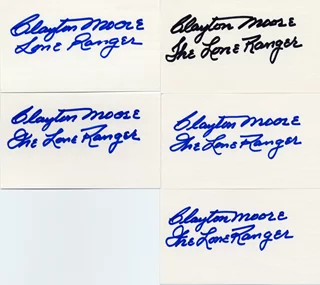 Clayton Moore
Lone Ranger
Clayton Moore
The Lone Ranger
Clayton Moore
The Lone Ranger
Clayton Moore
The Lone Ranger
Clayton Moore
The Lone Ranger